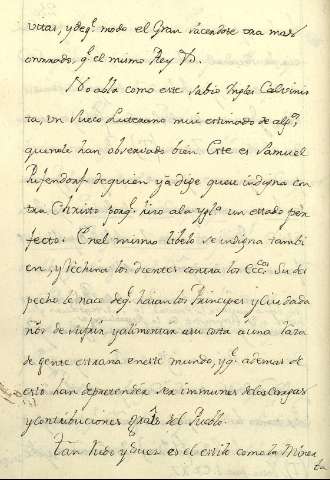 vitas, y deqe. modo el Gran sacerdote era mas
onrrado, qe. el mismo Rey D.
No abla como este sabio Ingles Calvinis
ta, un Sueco Luterano mui estimado de alps.
que no le han observado bien. Este es Samuel
Pufendorf de quien ya dige que se indigna con
tra Christo porqe. hizo a la ygla un estado per
fecto. En el mismo libelo se indigna tambi
en, y rechina los dientes contra los Eccos. Su des
pecho le nace deqe. haian los Principes y Ciudada
nos de sufrir y alimentar a su costa a una raza
de gente estraña en este mundo, y qe. ademas de
esto han de pretender ser immunes de las Cargas
y contribuciones grales del Pueblo.
Tan rudo y es el estilo como la